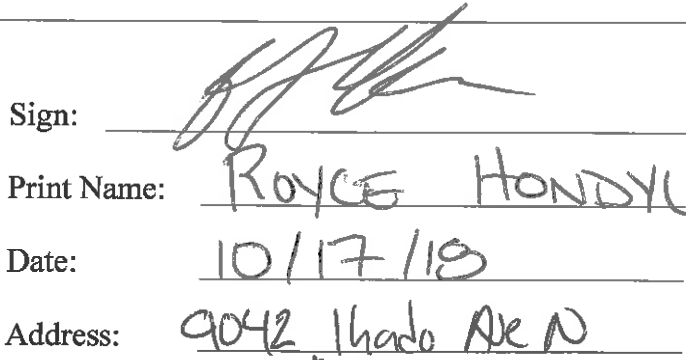 Sign:
Print Name: ROYCE HONDYL
Date: 10/17/18
Address: 9042 Ave N